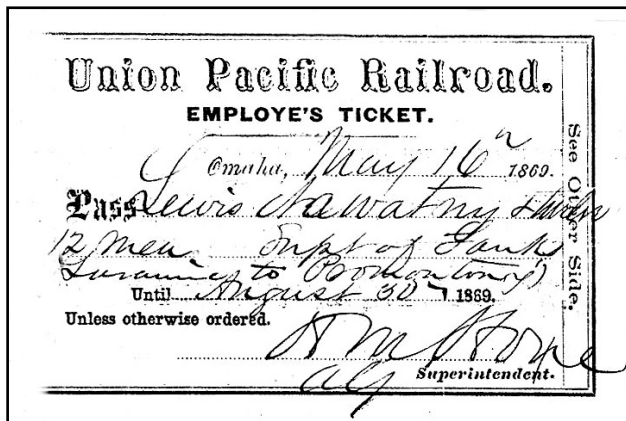 Union Pacific Railroad.
EMPLOYE'S TICKET.
Omaha, May 16 1869.
Pass Lewis Nawatny & twelve
12 men Supt of Tank
Laramie to Promontory
Until August 30 1869.
Unless otherwise ordered.
Superintendent.
See Other Side.